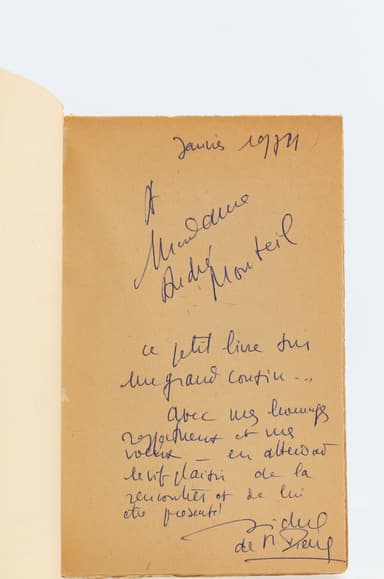 Janvier 19
A
Madame
André Monteil
ce petit livre sur
un grand cousin...
avec mes hommages
respectueux et mes
voeux — en attendant
le vif plaisir de la
rencontrer et de lui
être présenté!
Michel
de St Pierre